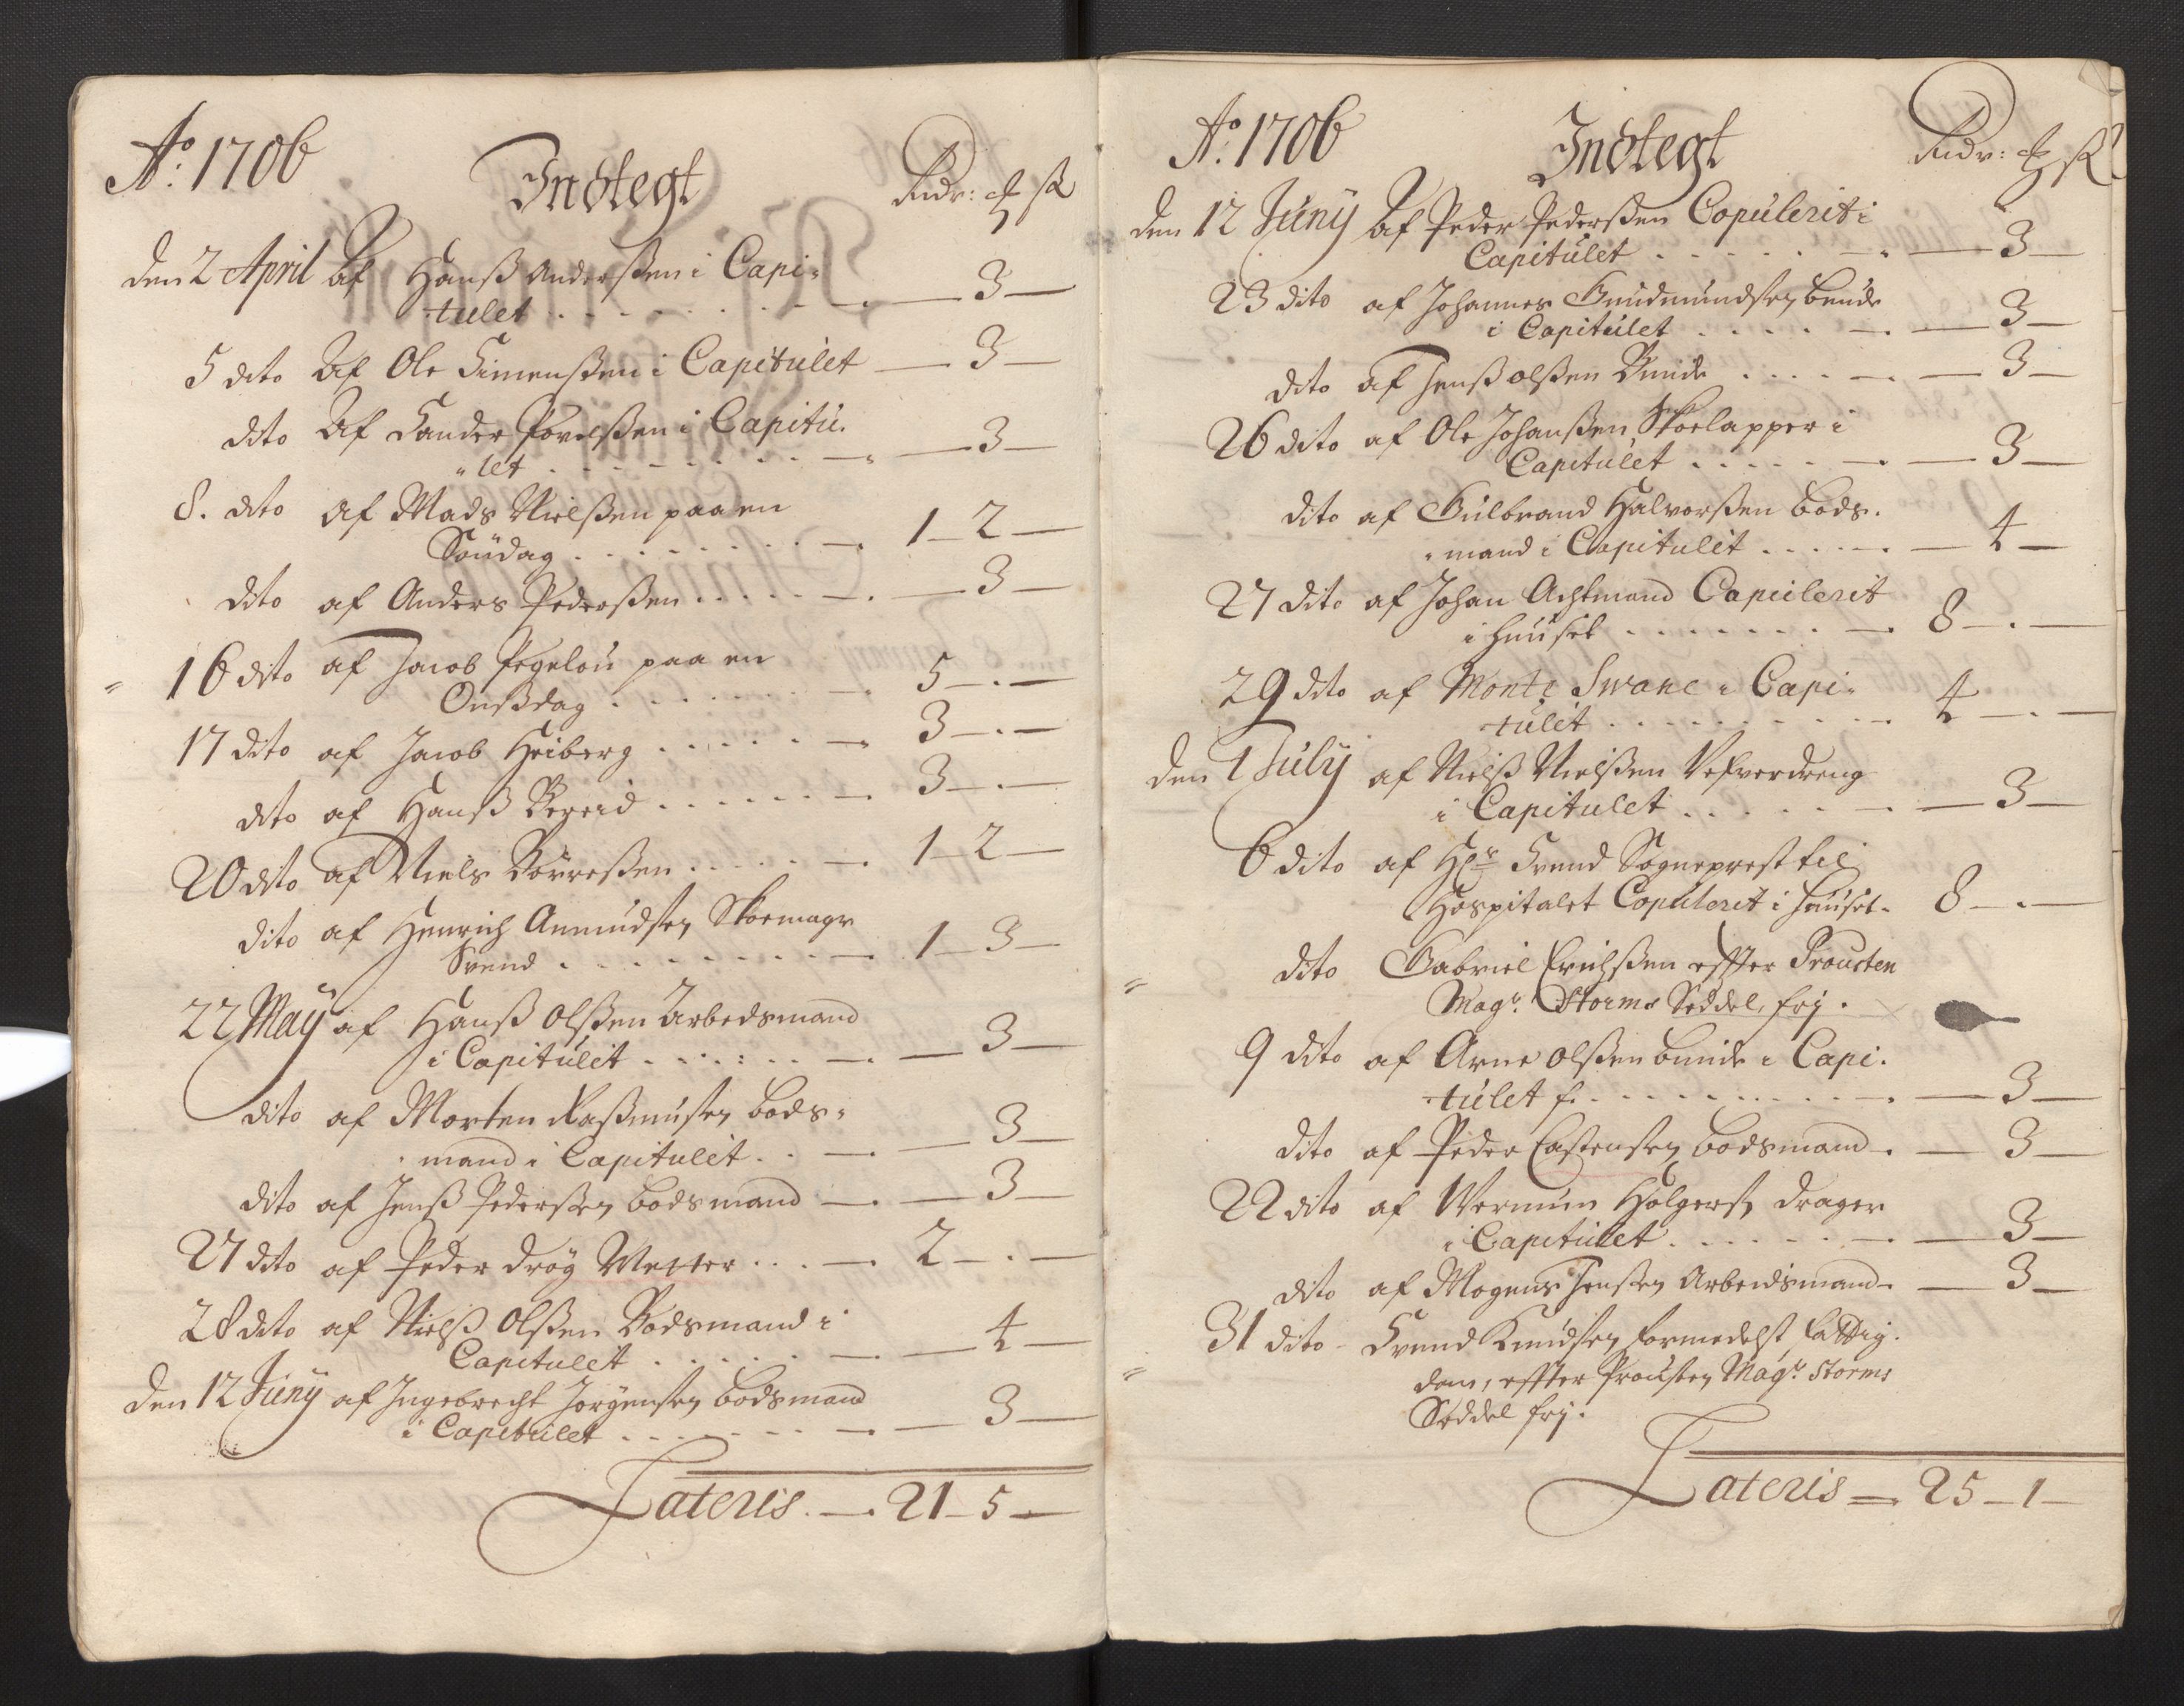 Ao: 1706
Indtegt
Rudr: ꝳ ß
den 2 April af Hanß Anderßen i Capi-
tulet . . . . . — 3 —
5 dito Af Ole Simenßen i Capitulet — 3 —
dito Af Sander Povelßen i Capitu-
let . . . . . — 3 —
8. dito af Mads Nielßen paa en
Søndag . . . . . 1 — 2 —
dito af Anders Pederßen . . . . . — 3 —
16 dito af Jacob Pegelou paa en
Onßdag . . . . . 5 — . —
17 dito af Jacob Heiberg . . . . . 3 — . —
dito af Hanß . . . . . 3 — . —
20 dito af Niels Børreßen . . . . . 1 — 2 —
dito af Henrich Anmudsen Skoemager
Svend . . . . . 1 — 3 —
22 May af Hanß Olßen Arbedsmand
i Capitulet . . . . . — 3 —
dito af Morten Raßmusen Bods-
mand i Capitulet . . — 3 —
dito af Jenß Pederßen Bodsmand — 3 —
27 dito af Peder Drøg Metter . . . 2 — . —
28 dito af Nielß Olßen Bodsmand i
Capitulet . . . . . — 4 —
den 12 Juny af Ingebrecht Jørgensen Bodsmand
i Capitulet . . . . . — 3 —
Lateris . — 21 — 5 —
Ao: 1706
Indtegt
Rudr: ꝳ ß
den 12 Juny af Peder Pederßen Copulerit i
Capitulet . . . . . — 3 —
23 dito af Johannes Gundmundsen Bunde
i Capitulet . . . . . — 3 —
dito af Jenß Olßen Bunde . . . . . — 3 —
26 dito af Ole Johanßen Skoelapper i
Capitulet . . . . . — 3 —
dito af Gulbrand Halvorßen Bods-
mand i Capitulet . . . . . — 4 —
27 dito af Johan Achtmand Capulerit
i Huuset . . . . . 8 — . —
29 dito af Monte Swane i Capi-
tulet . . . . . 4 — . —
den 1 July af Nielß Nielßen Vefverdreng
i Capitulet . . . . . — 3 —
6 dito af Hr Svend Sogneprest til
Hospitalet Copulerit i Huuset. 8 — . —
dito Gabriel Erichßen effter Prousten
Magr. Storms Seddel, frj.
9 dito af Arne Olßen Bunde i Capi-
tulet . . . . . — 3 —
dito af Peder Castensen Bodsmand . — 3 —
22 dito af Wermun Holgersen Drager
i Capitulet . . . . . — 3 —
dito af Mogens Jensen Arbeidsmand — 3 —
31 dito Svend Knudsen formedelst fattig-
dom, effter Prousten Magr. Storms
Seddel frj.
Lateris — 25 — 1 —